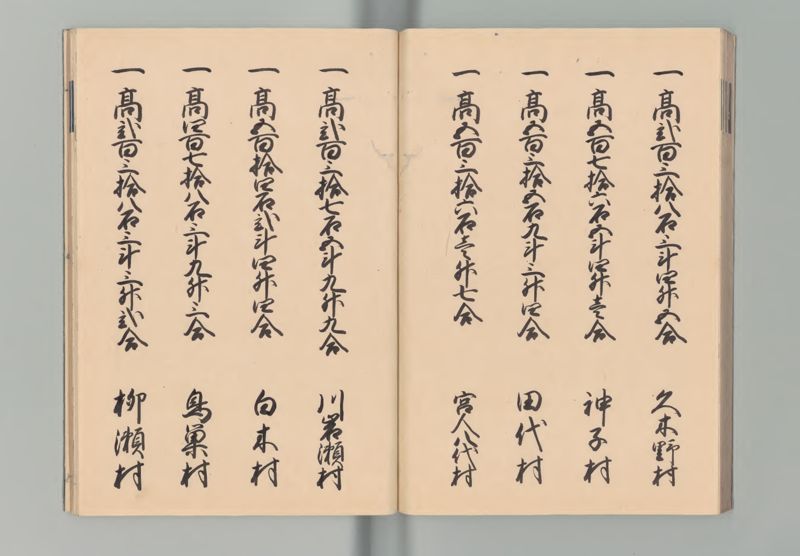 一高弐百三拾八石三斗四升五合 久木野村
一高五百七拾六石五斗四升壱合 神子村
一高五百三拾五石九斗三升四合 田代村
一高五百三拾六石壱升七合 宮人八代村
一高弐百三拾七石五斗九升九合 川岩瀬村
一高五百拾四石弐斗四升四合 白木村
一高四百七拾八石三斗九升三合 鳥巣村
一高弐百三拾八石三斗三升弐合 柳瀬村